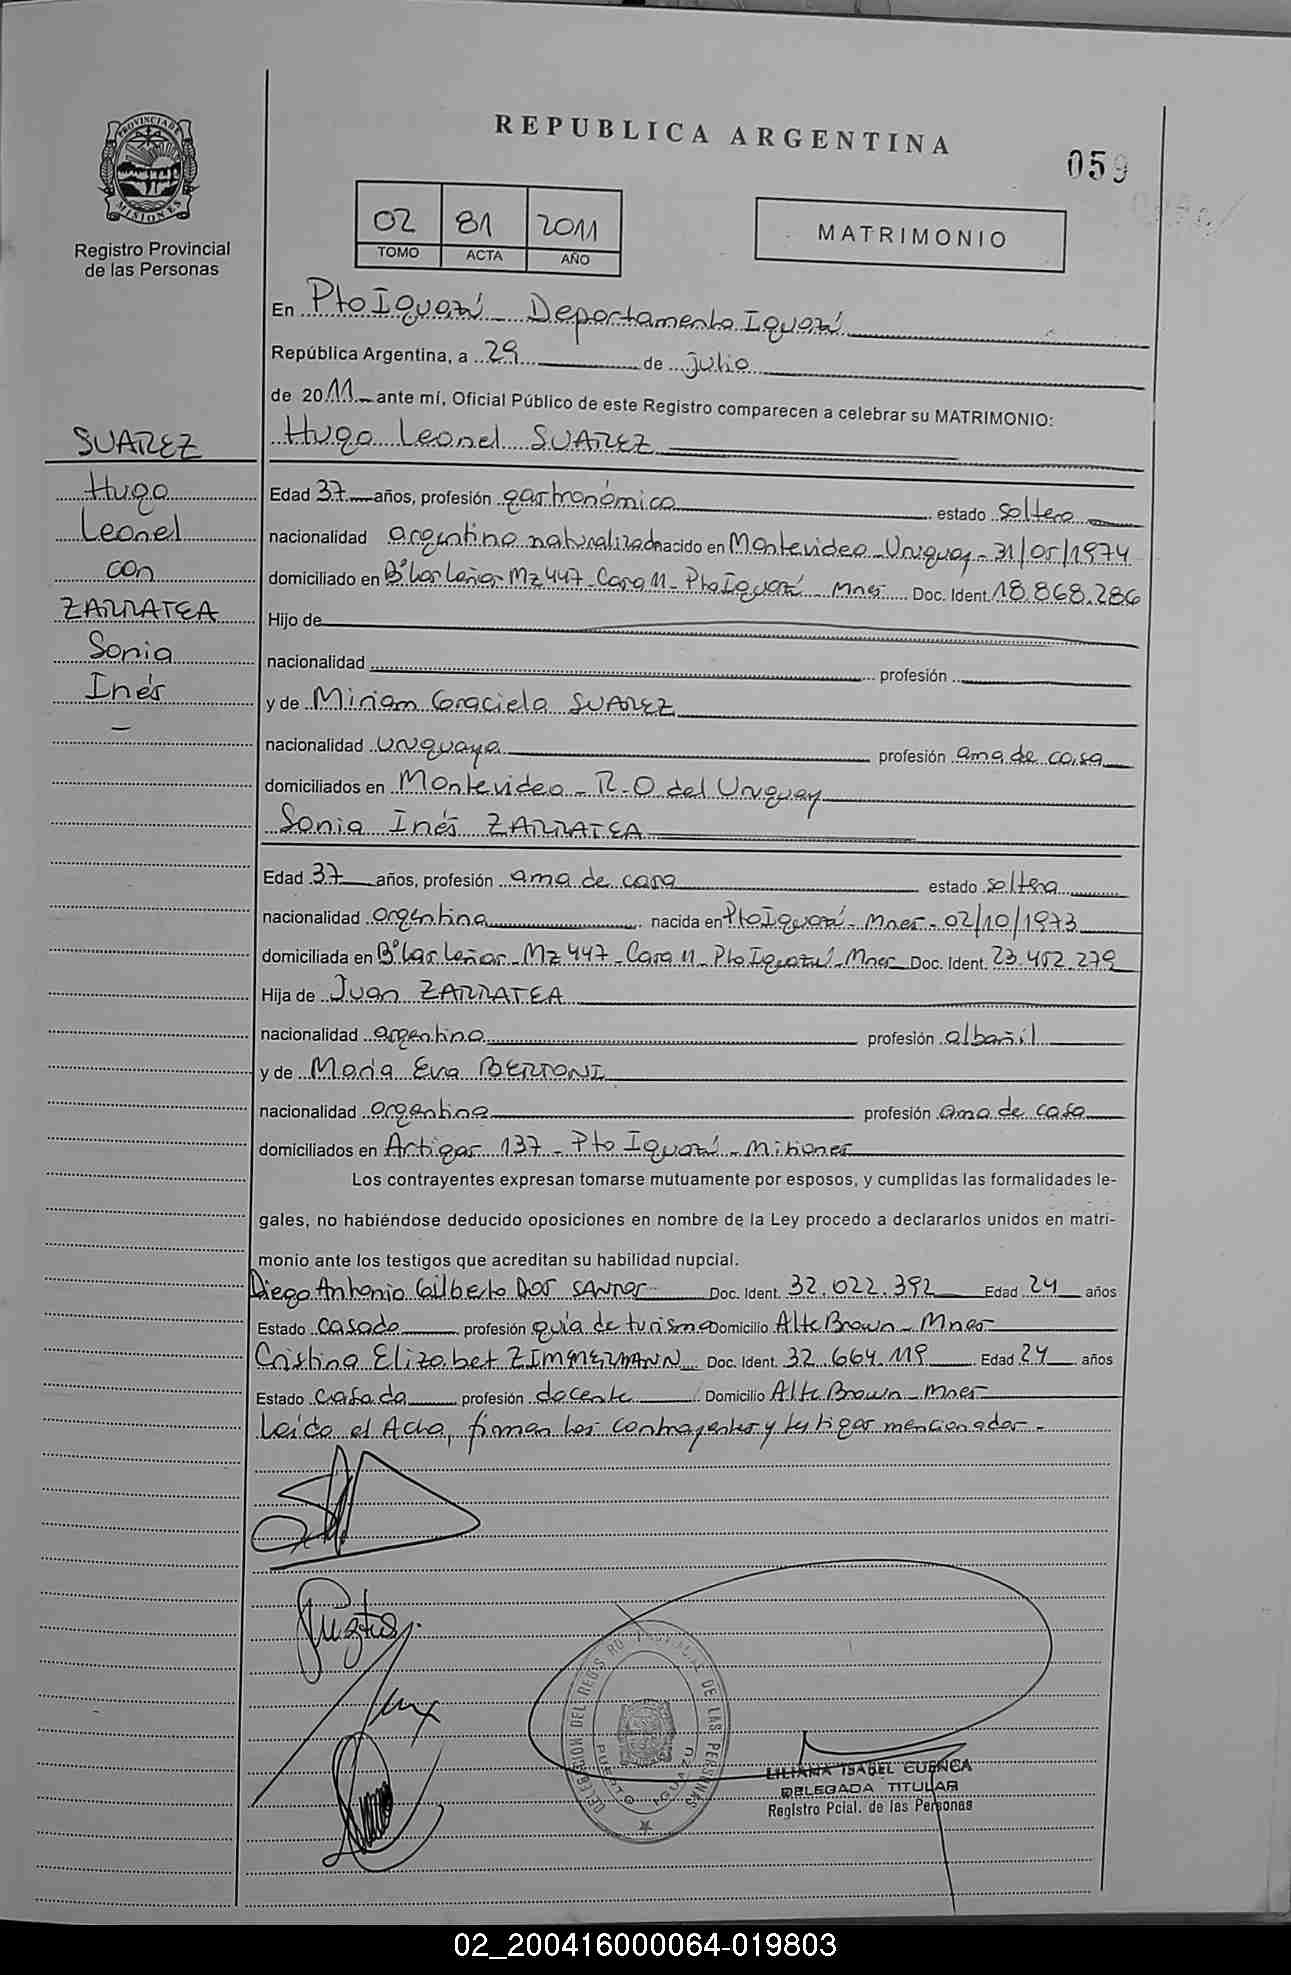 PROVINCIA DE
MISIONES
Registro Provincial
de las Personas
REPUBLICA ARGENTINA
059
02 81 2011
TOMO ACTA AÑO
MATRIMONIO
En Pto Iguazú Departamento Iguazú
República Argentina, a 29 de julio
de 2011 ante mí, Oficial Público de este Registro comparecen a celebrar su MATRIMONIO:
Hugo Leonel SUAREZ
SUAREZ
Hugo
Leonel
con
ZARRATEA
Sonia
Inés
Edad 37 años, profesión gastronómico estado soltero
nacionalidad argentino naturalizado nacido en Montevideo - Uruguay - 31/05/1974
domiciliado en Bº Las Leñas - Mz 447 - Casa 11 - Pto Iguazú - Mnes Doc. Ident. 18.868.286
Hijo de
nacionalidad profesión
y de Miriam Graciela SUAREZ
nacionalidad uruguaya profesión ama de casa
domiciliados en Montevideo - R.O del Uruguay
Sonia Inés ZARRATEA
Edad 37 años, profesión ama de casa estado soltera
nacionalidad argentina nacida en Pto Iguazú - Mnes - 02/10/1973
domiciliada en Bº Las Leñas - Mz 447 - Casa 11 - Pto Iguazú - Mnes Doc. Ident. 23.452.279
Hija de Juan ZARRATEA
nacionalidad argentino profesión albañil
y de María Eva BERTONI
nacionalidad argentina profesión ama de casa
domiciliados en Artigas 137 - Pto Iguazú - Misiones
Los contrayentes expresan tomarse mutuamente por esposos, y cumplidas las formalidades le-
gales, no habiéndose deducido oposiciones en nombre de la Ley procedo a declararlos unidos en matri-
monio ante los testigos que acreditan su habilidad nupcial.
Diego Antonio Gilberto DOS SANTOS Doc. Ident. 32.022.392 Edad 24 años
Estado casado profesión guía de turismo Domicilio Alte Brown - Mnes
Cristina Elizabet ZIMMERMANN Doc. Ident. 32.664.119 Edad 24 años
Estado casada profesión docente Domicilio Alte Brown - Mnes
Leído el Acta, firman los contrayentes y testigos mencionados -
DELEGACION DEL REGISTRO PROVINCIAL DE LAS PERSONAS
PUERTO IGUAZU
LILIANA ISABEL CUENCA
DELEGADA TITULAR
Registro Pcial. de las Personas
02_200416000064-019803